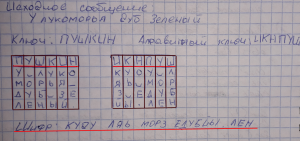 Исходное сообщение
У лукоморья дуб зеленый
Ключ: ПУШКИН Алфавитный ключ: ИКНПУШ
П У Ш К И Н И К Н П У Ш
У _ Л У К О К У О У _ Л
М О Р Ь Я _ Я Ь _ М О Р
Д У Б _ З Е З _ Е Д У Б
Л Е Н Ы Й Й Ы Л Е Н
Шифр: КУОУ ЛЯЬ МОРЗ ЕДУБЙЫ ЛЕН